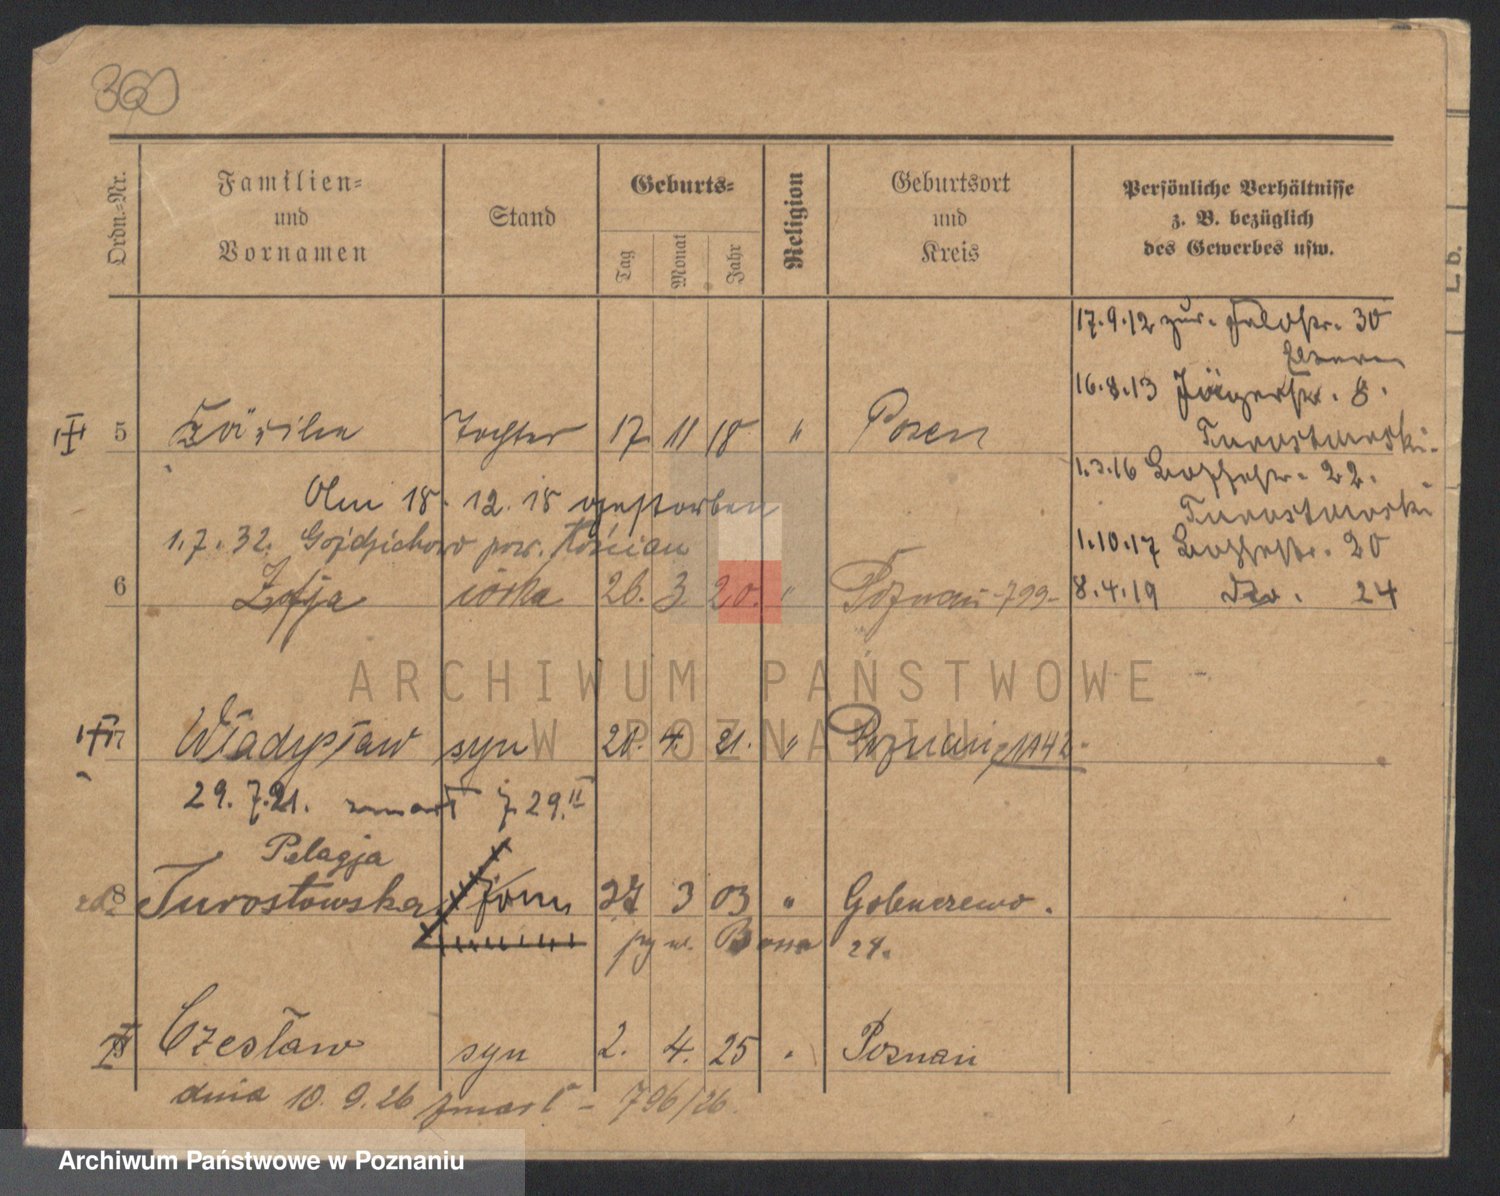 360
Ordn.-Nr.
Familien-
und
Vornamen
Stand
Geburts-
Tag
Monat
Jahr
Religion
Geburtsort
und
Kreis
Persönliche Verhältnisse
z. B. bezüglich
des Gewerbes usw.
L. b.
17.9.12 zur. Feldstr. 30
Eltern
16.8.13 Jägerstr. 8.
Turostowski.
1.3.16 22.
Turostowski
1.10.17 20
8.4.19 do. 24
5 Cäzilie Tochter 17 11 18 " Posen
Am 18. 12. 18 gestorben
1.7.32. pow. Kościan
6 Zofja córka 26. 3 20. " Poznań -799-
7 Władysław syn 28. 4. 21. " Poznań, 1142.
29.7.21. zmarł
Pelagja
8 Turostowska 27 3 03 " Golenczewo.
24.
Czesław syn 2. 4. 25 " Poznań
dnia 10. 9. 26 zmarł - 796/26.
ARCHIWUM PAŃSTWOWE
W POZNANIU
Archiwum Państwowe w Poznaniu